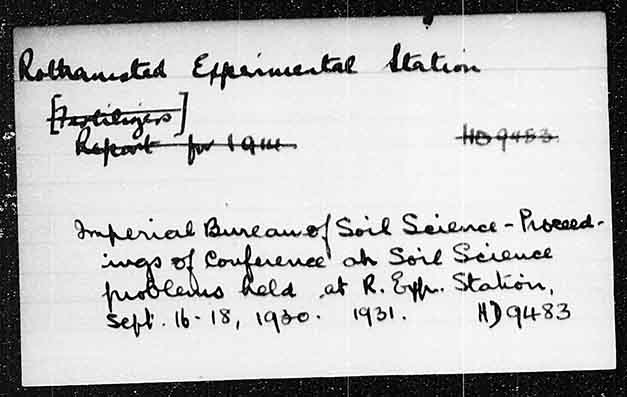 Rothamsted Experimental Station
[Fertilizers]
Report for 1914 HD 9483
Imperial Bureau of Soil Science - Proceed-
ings of Conference on Soil Science
problems held at R. Exp. Station,
Sept. 16-18, 1930. 1931. HD9483